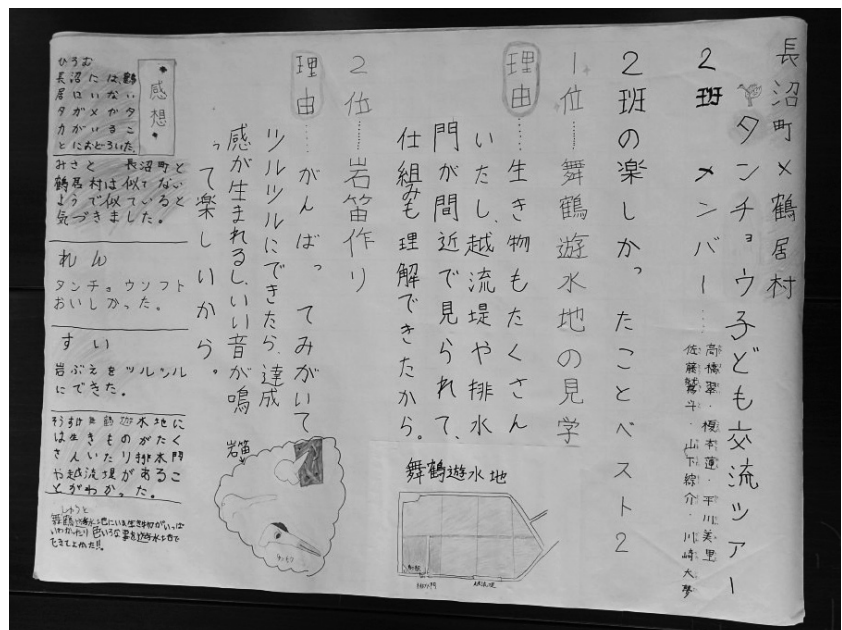 長沼町×鶴居村
タンチョウ子ども交流ツアー
2班 メンバー……
高橋翠・榎本蓮・平川美里
佐藤鷲斗・山下綜介・川崎大夢
2班の楽しかったことベスト2
1位……舞鶴遊水地の見学
理由……生き物もたくさん
いたし、越流堤や排水
門が間近で見られて、
仕組みも理解できたから。
2位……岩笛作り
理由……がんばってみがいて
ツルツルにできたら、達成
感が生まれるし、いい音が鳴
って楽しいから。
舞鶴遊水地
排水門
越流堤
岩笛
感想
ひろむ
長沼には、鶴
居にはいない
タガメやタ
カがいるこ
とにおどろいた。
みさと 長沼町と
鶴居村は似てない
ようで似ていると
気づきました。
れん
タンチョウソフト
おいしかった。
すい
岩ぶえをツルツル
にできた。
そうすけ 舞鶴遊水地に
は生きものがたく
さんいたり排水門
や越流堤があるこ
とがわかった。
しゅうと